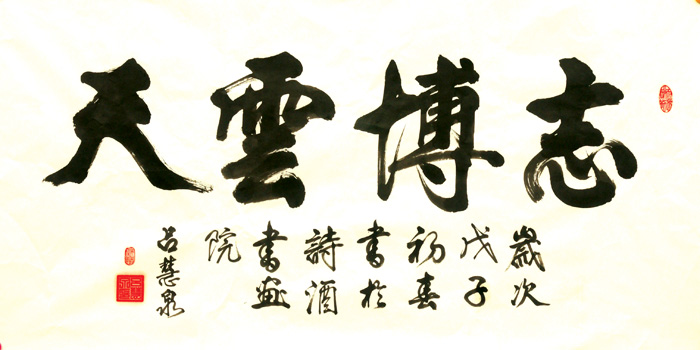 志博雲天
歲次
戊子
初春
書於
詩酒
書画
院
呂慧泉